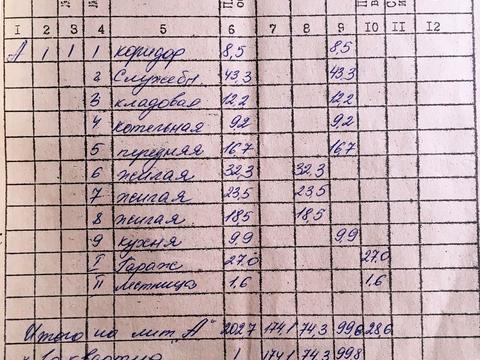 1 2 3 4 5 6 7 8 9 10 11 12
А 1 1 1 коридор 8,5 8,5
2 Служебн 43,3 43.3
3 кладовая 12,2 12,2
4 котельная 9.2 9.2
5 передняя 16,7 16,7
6 жилая 32,3 32.3
7 жилая 23,5 23,5
8 жилая 18,5 18,5
9 кухня 9.9 9.9
I Гараж 27.0 27.0
II Лестница 1,6 1.6
Итого на лит. „А" 202.7 174.1 74.3 99.8 28.6
1 174.1 74.3 99.8